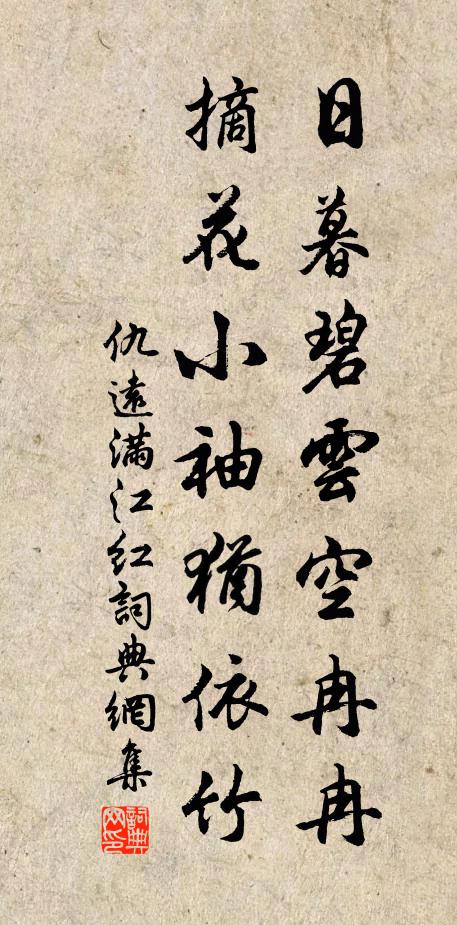 日暮碧雲空冉冉
摘花小袖猶依竹
仇遠滿江紅詞典網集
詞典网印